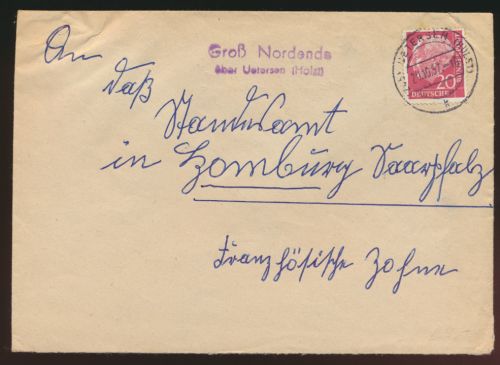 Groß Nordende
über Uetersen (Holst)
20
DEUTSCHE
An
daß
Standesamt
in Homburg Saarpfalz
Französische Zohne